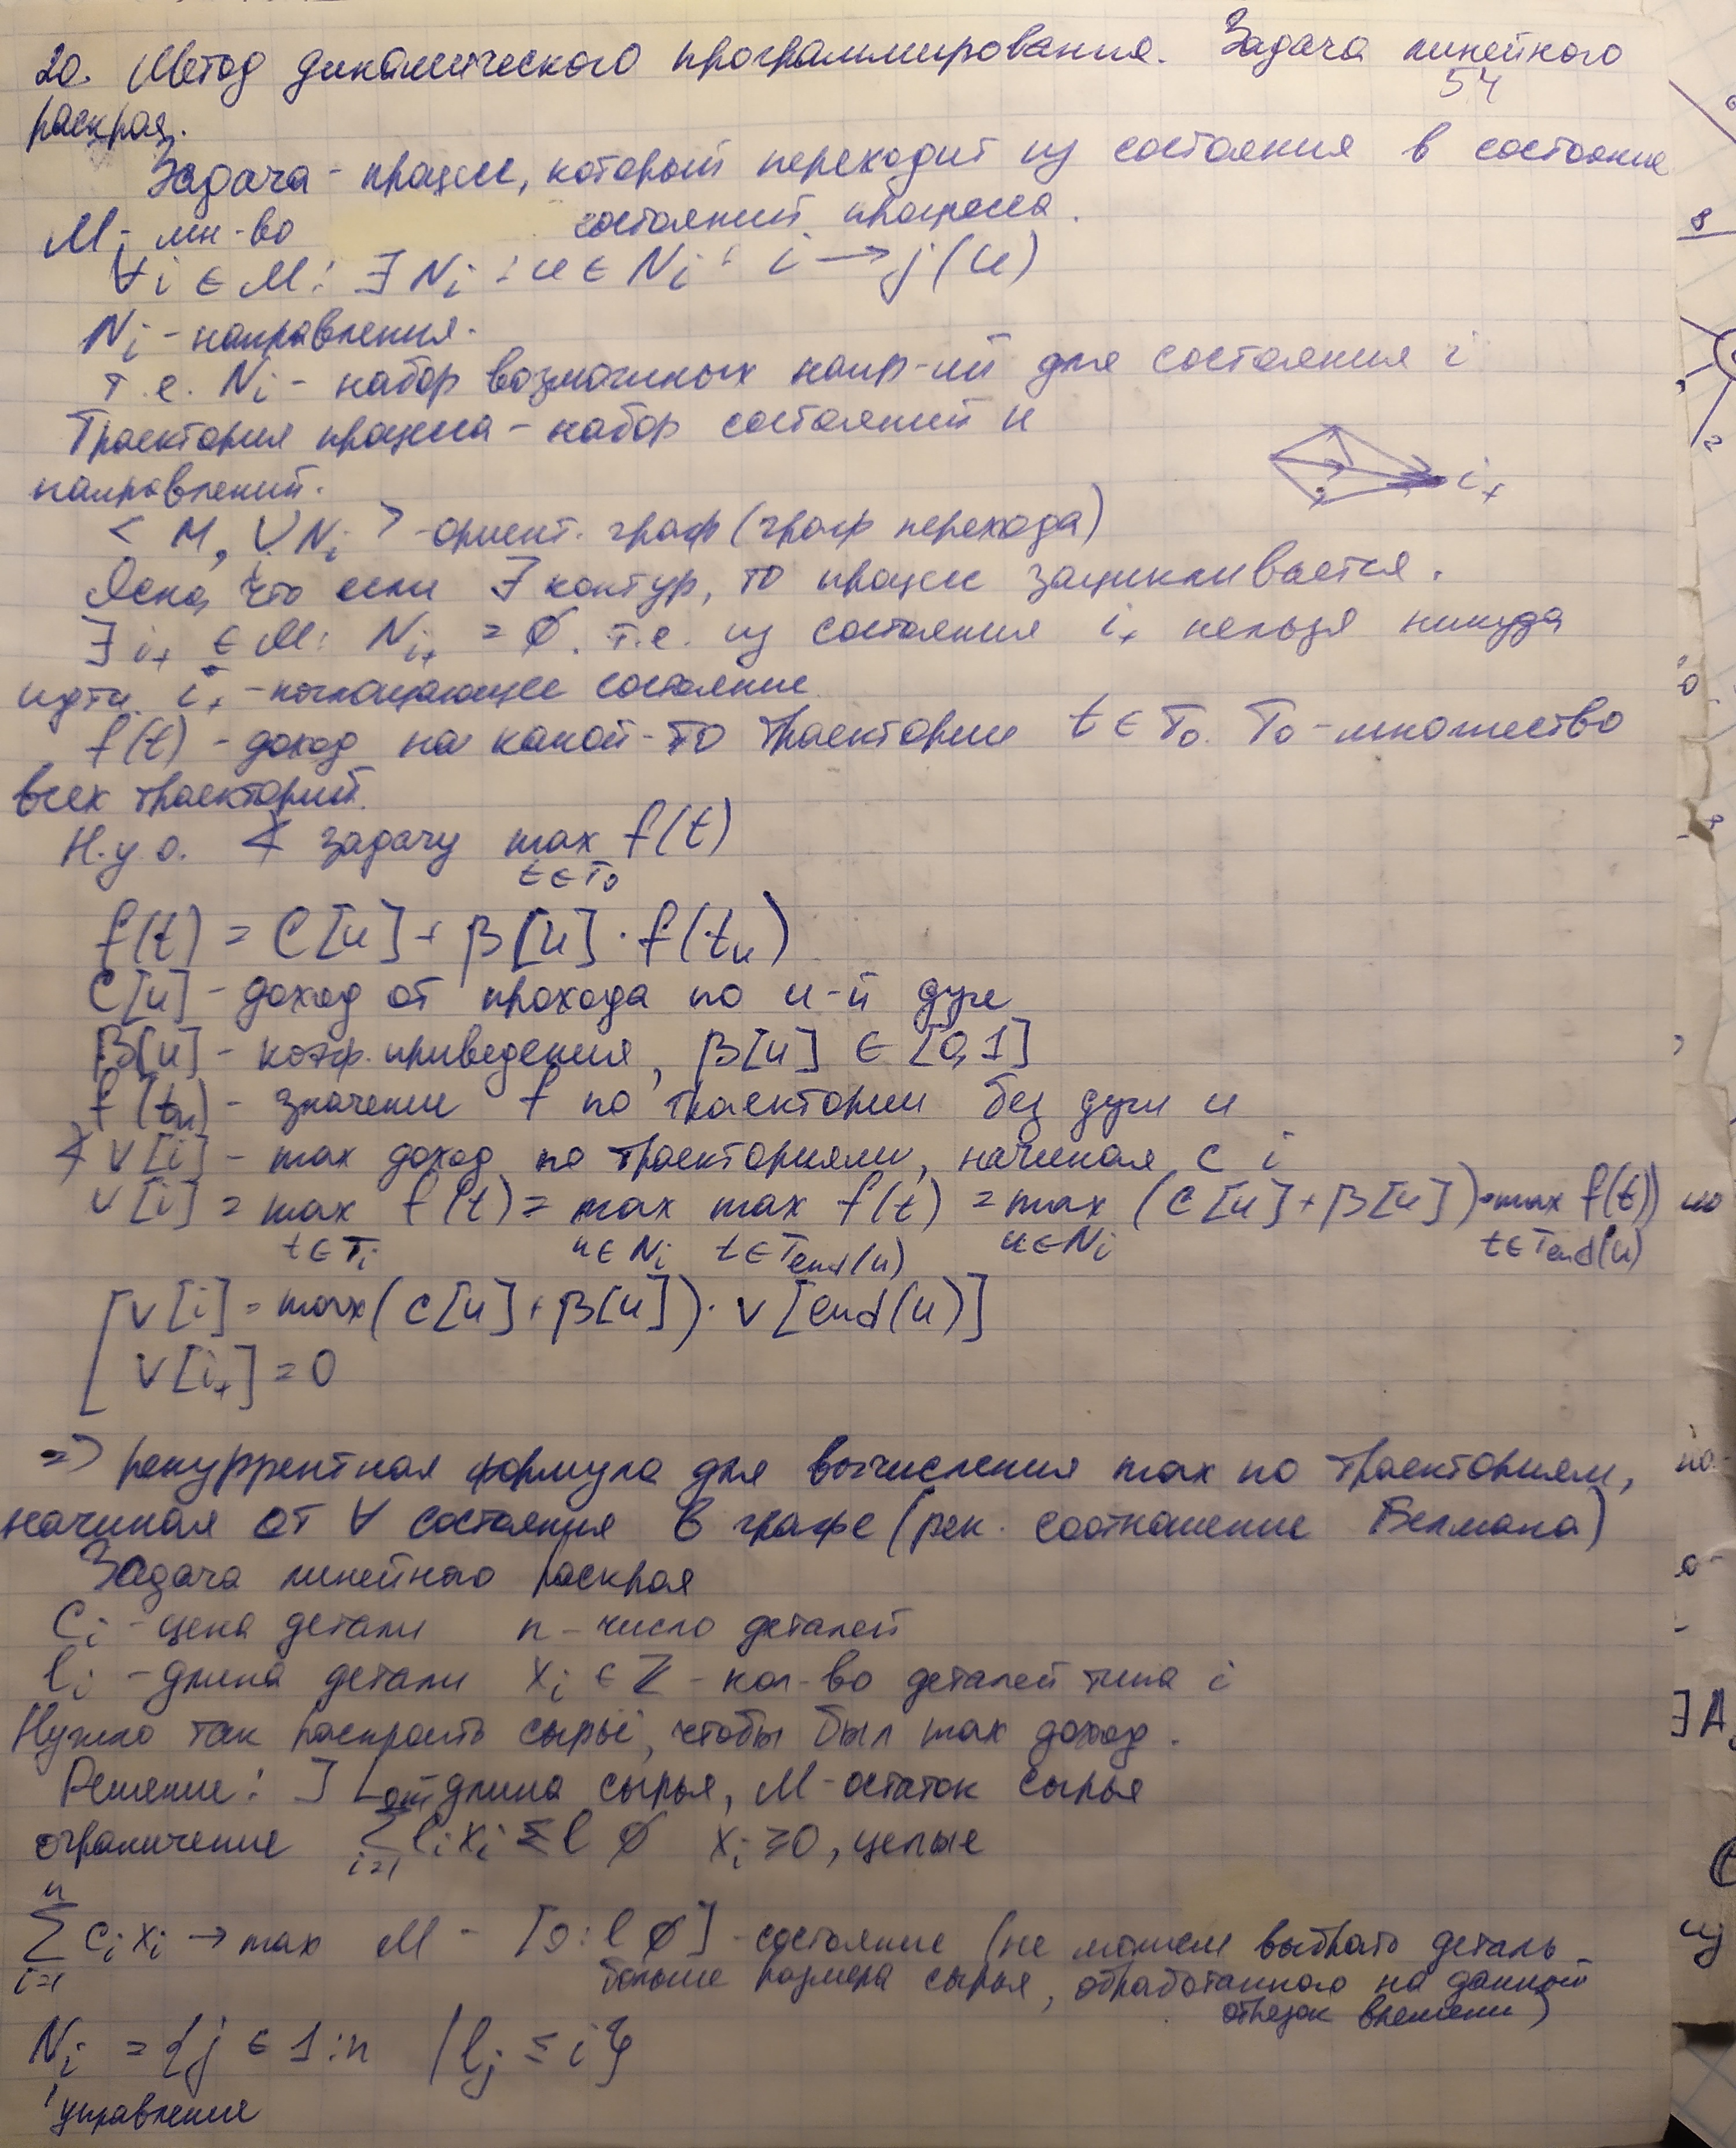 20. Метод динамического программирования. Задача линейного
54
раскроя.
Задача - процесс, который переходит из состояния в состояние
M - мн-во состояний процесса.
∀i ∈ M: ∃ Nᵢ : u ∈ Nᵢ : i → j(u)
Nᵢ - направления.
т.е. Nᵢ - набор возможных напр-ий для состояния i
Траектория процесса - набор состояний и
направлений.
i₊
< M, ∪Nᵢ > - ориент. граф (граф перехода)
i
Ясно, что если ∃ контур, то процесс зацикливается.
∃ i₊ ∈ M: Nᵢ₊ = ∅. т.е. из состояния i₊ нельзя никуда
идти. i₊ - поглощающее состояние
f(t) - доход на какой-то траектории t ∈ T₀. T₀ - множество
всех траекторий.
Н.у.о. ∢ задачу max f(t)
t ∈ T₀
f(t) = C[u] + β[u] · f(tᵤ)
C[u] - доход от прохода по u-й дуге
β[u] - коэф. приведения, β[u] ∈ [0,1]
f(tᵤ) - значение f по траектории без дуги u
∢ v[i] - max доход по траекториям, начиная с i
v[i] = max f(t) = max max f(t) = max (C[u] + β[u]) · max f(t))
t ∈ Tᵢ u ∈ Nᵢ t ∈ Tend(u) u ∈ Nᵢ t ∈ Tend(u)
[ v[i] = max(C[u] + β[u]) · v[end(u)]
v[i₊] = 0
=> рекуррентная формула для вычисления max по траекториям,
начиная от ∀ состояния в графе (рек. соотношение Белмана)
Задача линейного раскроя
Cᵢ - цена детали n - число деталей
lᵢ - длина детали xᵢ ∈ Z - кол-во деталей типа i
Нужно так раскроить сырьё, чтобы был max доход.
Решение: ] L - длина сырья, M - остаток сырья
ограничение ∑ lᵢxᵢ ≤ l xᵢ ≥ 0, целые
i=1
n
∑ cᵢxᵢ → max M - [0:l] - состояние (не можем выбрать деталь
i=1 больше размера сырья, обработанного на данный
отрезок времени)
Nᵢ = {j ∈ 1:n | lⱼ ≤ i}
управление